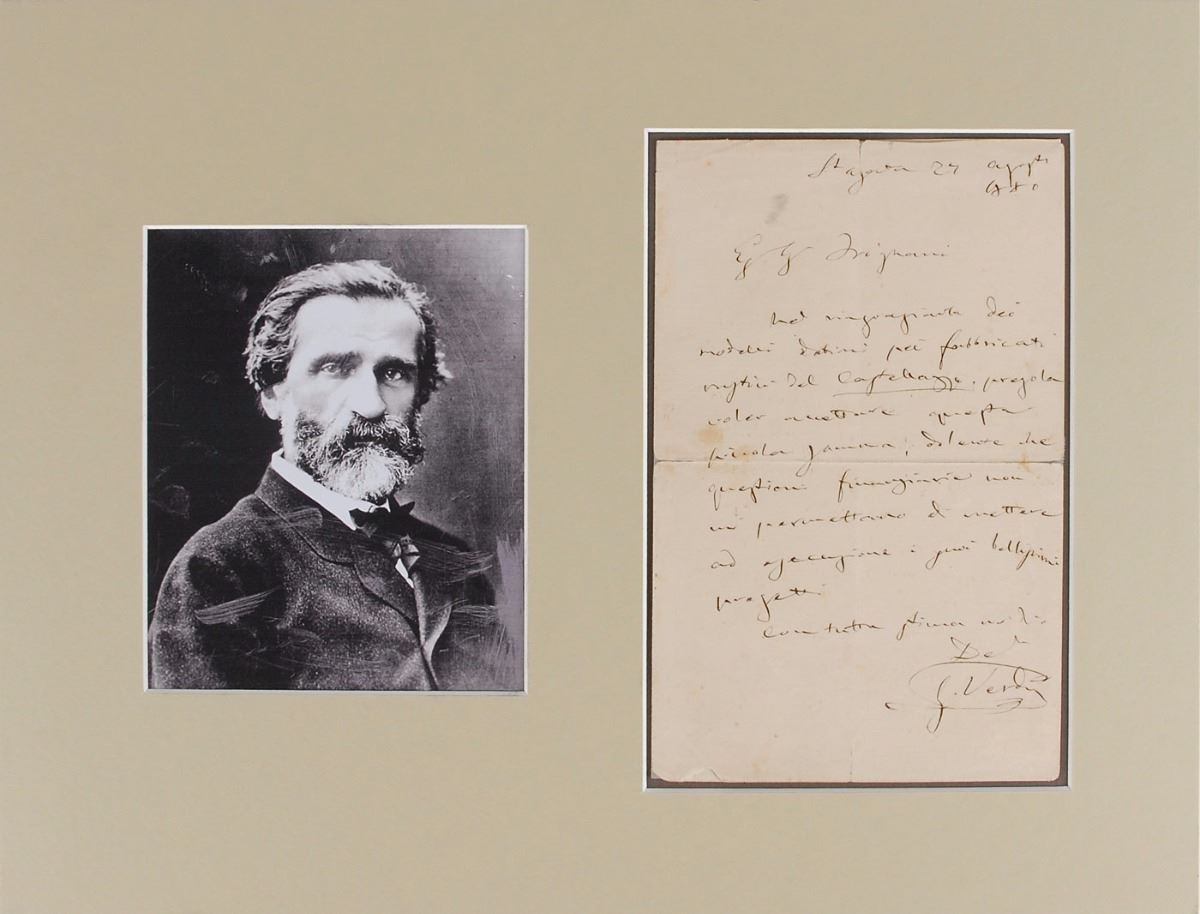 St agata 27 agosto
Eg Sig Frignani
Nel ringraziarla dei
modelli datimi pei fabbricati
rustici del Castellazzo, pregola
voler accettare questa
piccola somma; dolente che
questioni finanziarie non
mi permettano di mettere
ad esecuzione i suoi bellissimi
progetti
Con tutta stima mi dico
Dev
G. Verdi